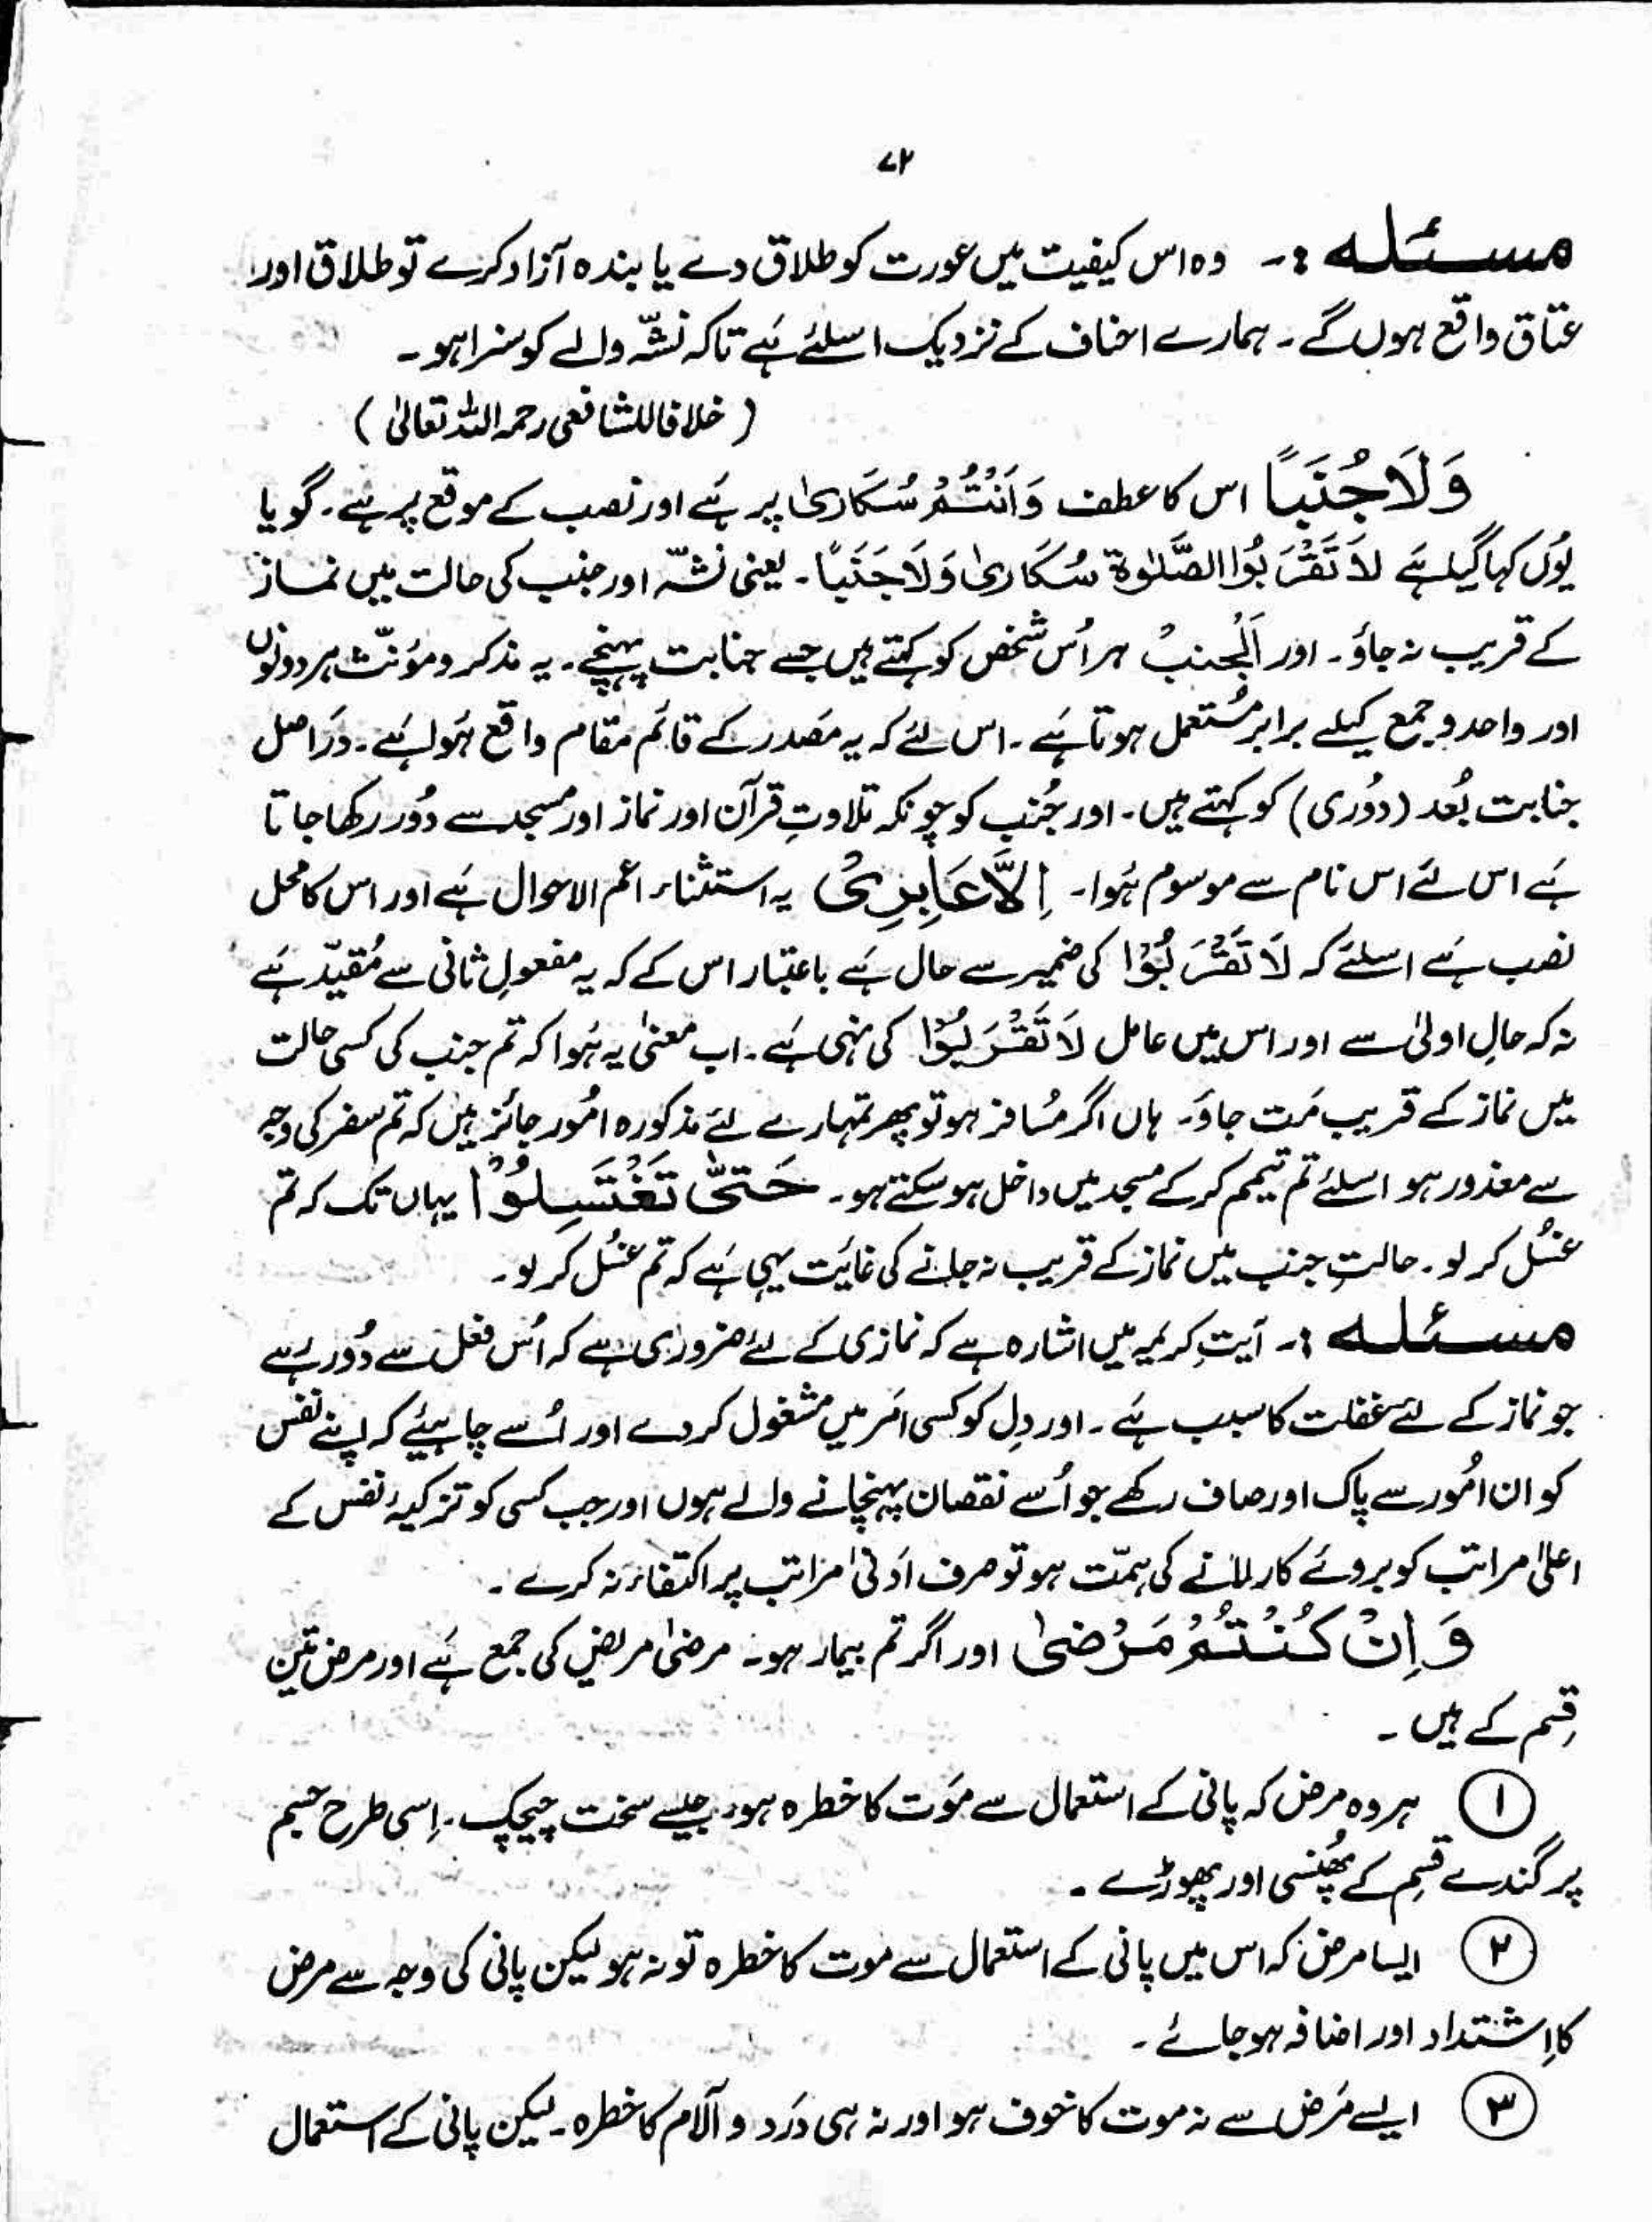 ۷۲
مسئلہ :۔ وہ اس کیفیت میں عورت کو طلاق دے یا بندہ آزاد کرے تو طلاق اور
عتاق واقع ہوں گے۔ ہمارے احناف کے نزدیک اسلئے ہے تاکہ نشہ والے کو سزا ہو۔
(خلافا للشافعی رحمہ اللہ تعالیٰ)
وَلَا جُنُبًا اس کا عطف وَاَنْتُمْ سُكَارىٰ پر ہے اور نصب کے موقع پر ہے۔ گویا
یوں کہا گیا ہے لَا تَقْرَبُوا الصَّلٰوةَ سُكَارىٰ وَلَا جَنَبًا۔ یعنی نشہ اور جنب کی حالت میں نماز
کے قریب نہ جاؤ۔ اور اَلْجنبُ ہر اُس شخص کو کہتے ہیں جسے جنابت پہنچے۔ یہ مذکر و مؤنث ہر دونوں
اور واحد و جمع کیلے برابر مُستعمل ہوتا ہے۔ اس لئے کہ یہ مَصدر کے قائم مقام واقع ہوا ہے۔ دَراصل
جنابت بُعد (دُوری) کو کہتے ہیں۔ اور جُنب کو چونکہ تلاوتِ قرآن اور نماز اور مسجد سے دُور رکھا جاتا
ہے اس لئے اس نام سے موسوم ہُوا۔ اِلَّا عَابِرِىْ یہ استثناء اعم الاحوال ہے اور اس کا محل
نصب ہے اسلئے کہ لَا تَقْرَبُوْا کی ضمیر سے حال ہے باعتبار اس کے کہ یہ مفعولِ ثانی سے مُقیّد ہے
نہ کہ حالِ اولیٰ سے اور اس میں عامل لَا تَقْرَبُوْا کی نہی ہے۔ اب معنیٰ یہ ہُوا کہ تم جنب کی کسی حالت
میں نماز کے قریب مَت جاؤ۔ ہاں اگر مُسافر ہو تو پھر تمہارے لئے مذکورہ امُور جائز ہیں کہ تم سفر کی وجہ
سے معذور ہو اسلئے تم تیمم کر کے مسجد میں داخل ہو سکتے ہو۔ حَتّٰى تَغْتَسِلُوْا یہاں تک کہ تم
غسُل کر لو۔ حالتِ جنب میں نماز کے قریب نہ جانے کی غایَت یہی ہے کہ تم غسُل کر لو۔
مسئلہ :۔ آیتِ کریمہ میں اشارہ ہے کہ نمازی کے لئے ضروری ہے کہ اُس فعل سے دُور رہے
جو نماز کے لئے غفلت کا سبب ہے۔ اور دِل کو کسی امَر میں مشغول کر دے اور اُسے چاہیئے کہ اپنے نفس
کو ان امُور سے پاک اور صاف رکھے جو اُسے نقصان پہنچانے والے ہوں اور جب کسی کو تزکیۂ نفس کے
اعلیٰ مراتب کو بروئے کار لانے کی ہمّت ہو تو صرف اَدنیٰ مراتب پر اکتفاء نہ کرے۔
وَاِنْ كُنْتُمْ مَرْضىٰ اور اگر تم بیمار ہو۔ مرضیٰ مریض کی جمع ہے اور مرض تین
قِسم کے ہیں۔
① ہر وہ مرض کہ پانی کے استعمال سے مَوت کا خطرہ ہو۔ جیسے سخت چیچک۔ اِسی طرح جسم
پر گندے قسِم کے پھُنسی اور پھوڑے۔
② ایسا مرض کہ اس میں پانی کے استعمال سے موت کا خطرہ تو نہ ہو لیکن پانی کی وجہ سے مرض
کا اِشتداد اور اضافہ ہو جائے۔
③ ایسے مَرض سے نہ موت کا خوف ہو اور نہ ہی دَرد و آلام کا خطرہ۔ لیکن پانی کے استعمال